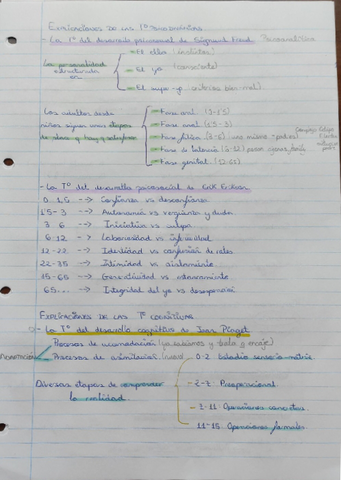 Explicaciones de las Tº Psicoanalíticas
- La Tº del desarrollo psicosexual de Sigmund Freud
La personalidad estructurada en:
→ El ello (instintos)
→ El yo (consciente)
→ El super-yo (criterios bien-mal)
Los adultos serán niños sigues unas etapas
→ Fase oral (0-1'5)
→ Fase anal (1'5-3)
→ Fase fálica (3-6)
→ Fase de latencia (6-12)
→ Fase genital (12-
- La Tº del desarrollo psicosocial de Erik Erikson
0-1,5 --> Confianza vs desconfianza
1'5-3 --> Autonomía vs vergüenza y duda
3-6 --> Iniciativa vs culpa
6-12 --> Laboriosidad vs inferioridad
12-22 --> Identidad vs confusión de roles
22-35 --> Intimidad vs aislamiento
35-65 --> Generatividad vs estancamiento
65... --> Integridad del yo vs desesperación
Explicaciones de las Tº cognitivas
- La Tº del desarrollo cognitivo de Jean Piaget
Procesos de acomodación
Procesos de asimilación (nuevo)
0-2 Estadio sensorio-motriz
Diversas etapas de comprender la realidad
- 2-7 Preoperacional
- 7-11 Operaciones concretas
11-15 Operaciones formales